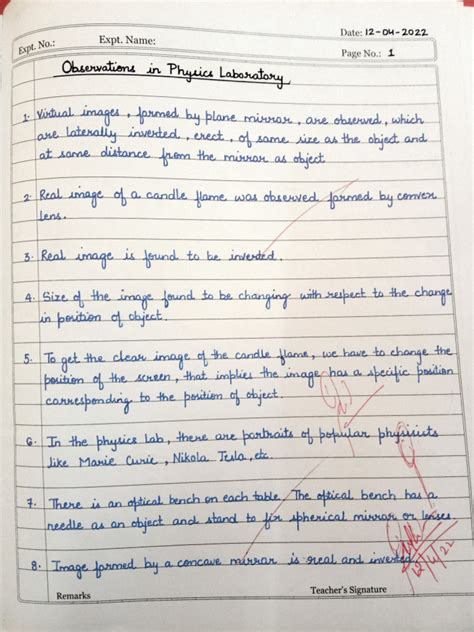 Date: 12-04-2022
Expt. No.: Expt. Name:
Page No.: 1
Observations in Physics Laboratory
1. Virtual images, formed by plane mirror, are observed, which
are laterally inverted, erect, of same size as the object and
at same distance from the mirror as object
2. Real image of a candle flame was observed formed by convex
lens.
3. Real image is found to be inverted.
4. Size of the image found to be changing with respect to the change
in position of object.
5. To get the clear image of the candle flame, we have to change the
position of the screen, that implies the image has a specific position
corresponding to the position of object.
6. In the physics lab, there are portraits of popular physicists
like Marie Curie, Nikola Tesla, etc.
7. There is an optical bench on each table. The optical bench has a
needle as an object and stand to fix spherical mirror or lenses.
8. Image formed by a concave mirror is real and inverted
12/4/22
Remarks Teacher's Signature